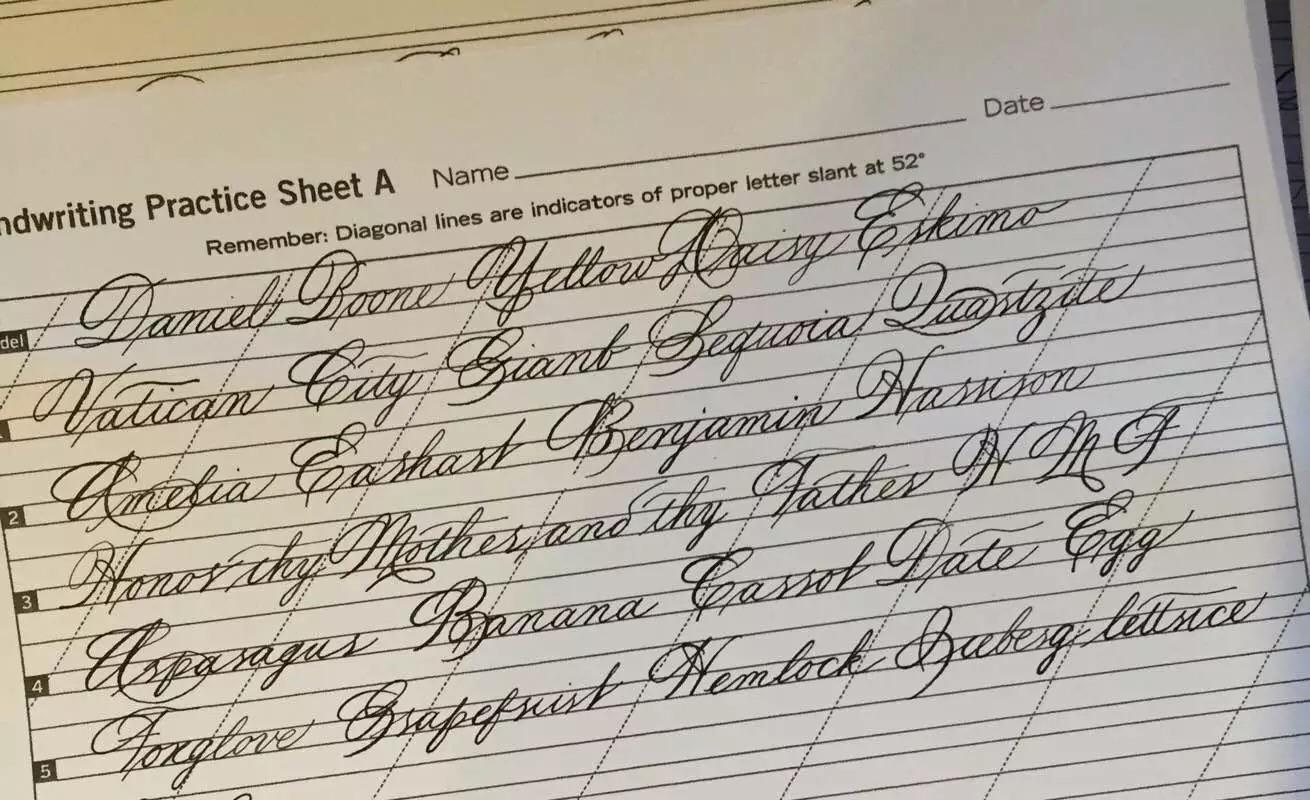 ndwriting Practice Sheet A Name Date
Remember: Diagonal lines are indicators of proper letter slant at 52°
del Daniel Boone Yellow Daisy Eskimo
1 Vatican City Giant Sequoia Quartzite
2 Amelia Earhart Benjamin Harrison
3 Honor thy Mother and thy Father H M F
4 Asparagus Banana Carrot Date Egg
5 Foxglove Grapefruit Hemlock Iceberg lettuce